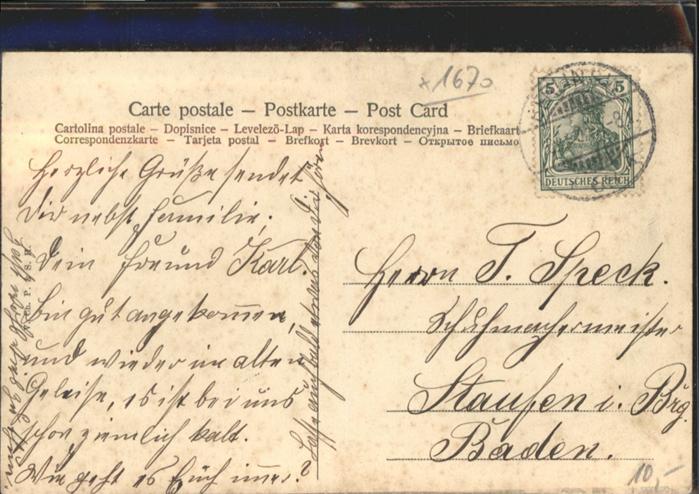 x 1670
Carte postale – Postkarte – Post Card
Cartolina postale – Dopisnice – Levelező-Lap – Karta korespondencyjna – Briefkaart
Correspondenzkarte – Tarjeta postal – Brefkort – Brevkort – Открытое письмо
5 5
DEUTSCHES REICH
Herzliche Grüße sendet
Dir nebst Familie.
Dein Freund Karl.
Bin gut angekommen,
und wieder im alten
Geleise, es ist bei uns
schon ziemlich kalt.
Wie geht es Euch immer?
Hoffe auch bald etwas von Dir
Herrn F. Speck.
Schuhmachermeister
Staufen i. Brg.
Baden.
10,-